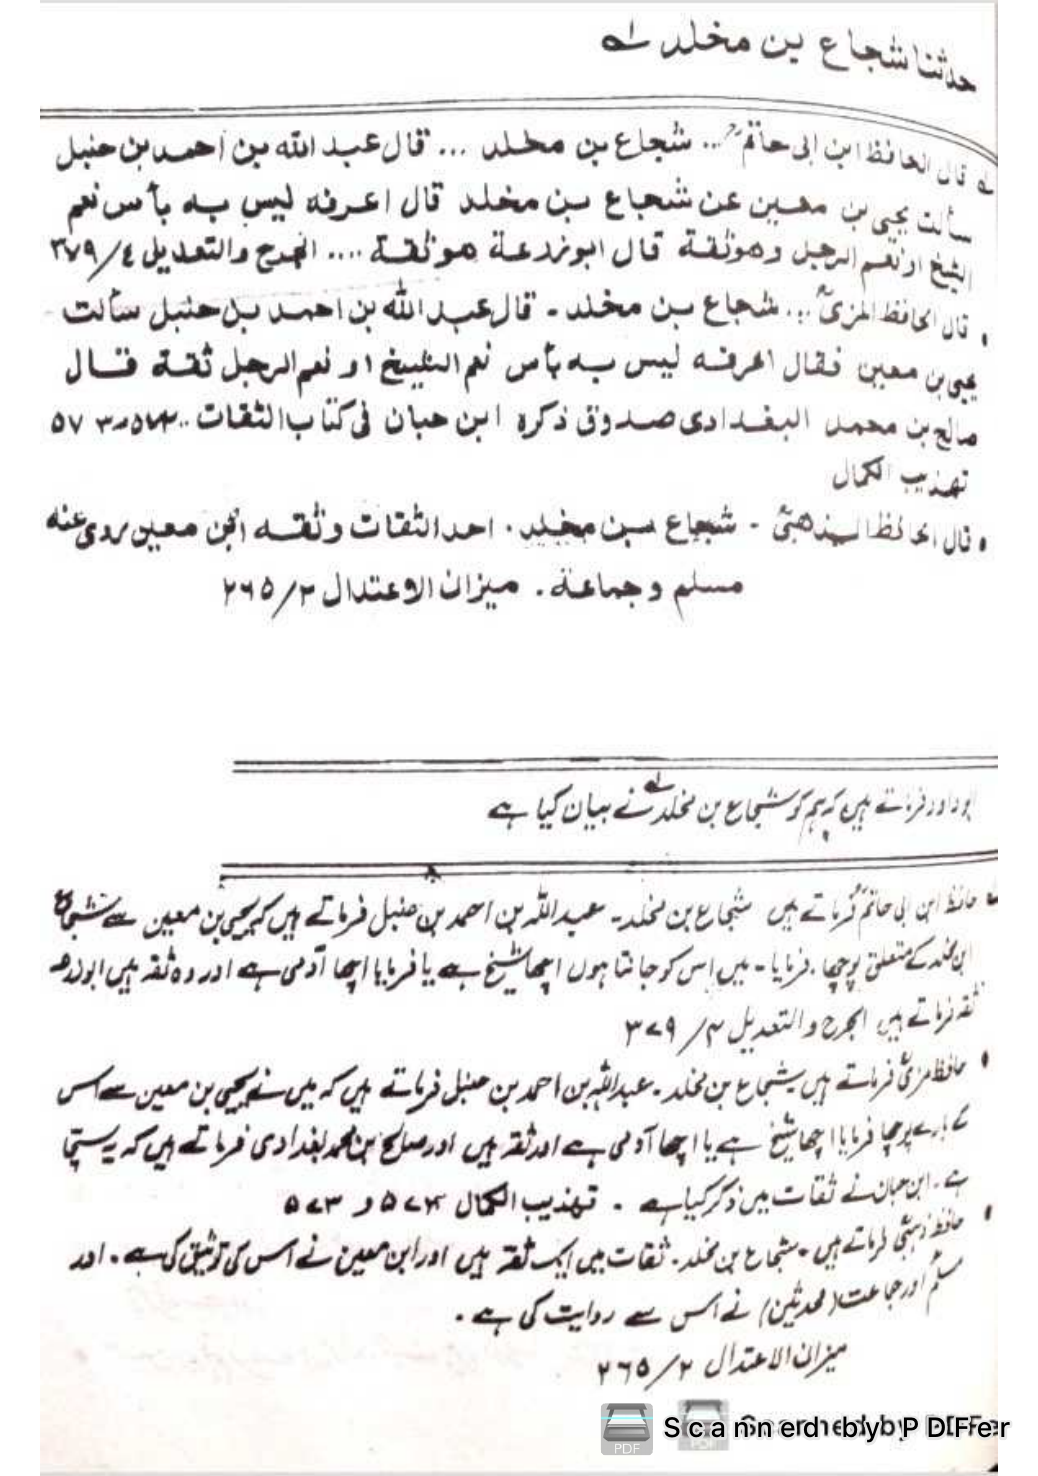 حدثنا شجاع بن مخلد لہ
لہ قال الحافظ ابن ابی حاتمؒ ... شجاع بن مخلد ... قال عبد اللہ بن احمد بن حنبل
سألت یحیی بن معین عن شجاع بن مخلد قال اعرفه لیس به بأس نعم
الشیخ او نعم الرجل وهو ثقة قال ابو زرعة هو ثقة .... الجرح والتعدیل ٤/٣٧٩
• قال الحافظ المزیؒ ... شجاع بن مخلد - قال عبد اللہ بن احمد بن حنبل سألت
یحیی بن معین فقال اعرفه لیس به بأس نعم الشیخ او نعم الرجل ثقة قال
صالح بن محمد البغدادی صدوق ذکره ابن حبان فی کتاب الثقات ..
تهذیب الکمال
• قال الحافظ الذهبیؒ - شجاع بن مخلد . احد الثقات وثقه ابن معین روی عنه
مسلم وجماعة . میزان الاعتدال ٢/٢٦٥
ابو داود فرماتے ہیں کہ ہم کو شجاع بن مخلد لہ نے بیان کیا ہے
لہ حافظ ابن ابی حاتمؒ فرماتے ہیں شجاع بن مخلد - عبد اللہ بن احمد بن حنبل فرماتے ہیں کہ یحیی بن معین سے شجاع
ابن مخلد کے متعلق پوچھا . فرمایا - میں اس کو جانتا ہوں اچھا شیخ ہے یا فرمایا اچھا آدمی ہے اور وہ ثقہ ہیں ابوزرعہ
ثقہ فرماتے ہیں الجرح والتعدیل ۴/۳۷۹
• حافظ مزیؒ فرماتے ہیں شجاع بن مخلد - عبد اللہ بن احمد بن حنبل فرماتے ہیں کہ میں نے یحیی بن معین سے اس
کے بارے پوچھا فرمایا اچھا شیخ ہے یا اچھا آدمی ہے اور ثقہ ہیں اور صالح بن محمد بغدادی فرماتے ہیں کہ یہ سچا
ہے - ابن حبان نے ثقات میں ذکر کیا ہے . تهذیب الکمال ۵۷۴ و ۵۷۳
• حافظ ذہبیؒ فرماتے ہیں - شجاع بن مخلد - ثقات میں ایک ثقہ ہیں اور ابن معین نے اس کی توثیق کی ہے . اور
مسلم اور جماعت (محدثین) نے اس سے روایت کی ہے .
میزان الاعتدال ۲/۲۶۵
Scanned by PDFer